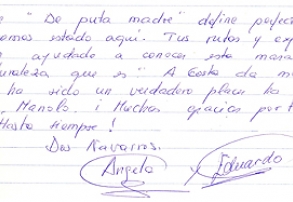 "De puta madre" define perfec
hemos estado aquí. Tus rutas y exp
ayudado a conocer esta mara
turaleza que es "A Costa da m
ha sido un verdadero placer ha
Manolo. ¡ Muchas gracias por t
Hasta siempre!
Dos Navarros.
Angela y Eduardo